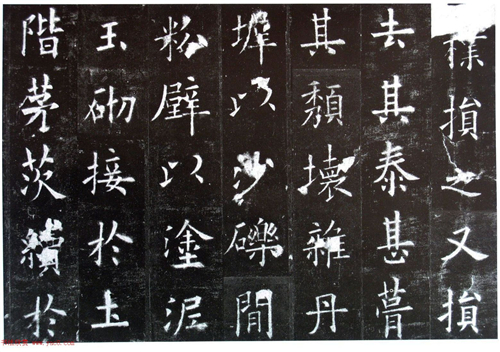 樸損之又損
去其泰甚葺
其頹壞雜丹
墀以沙礫間
粉壁以塗泥
玉砌接於土
階茅茨續於